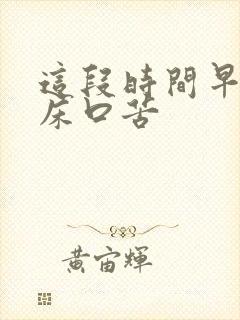 這段時間早
床口苦
黃宙輝